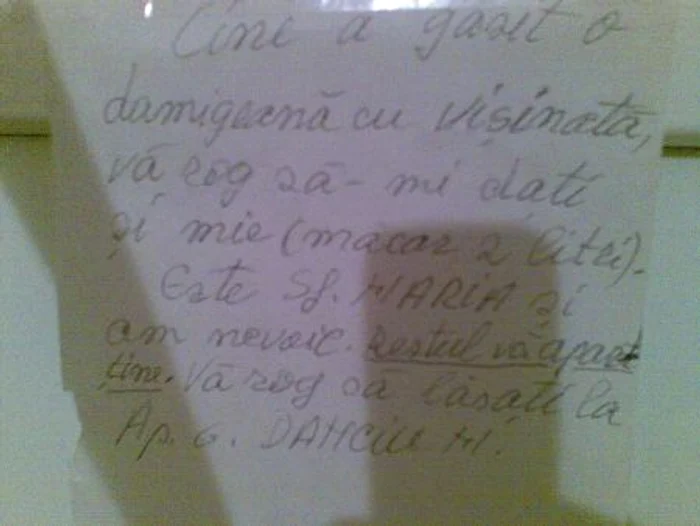 Cine a gasit o
damigeană cu vișinată,
vă rog să-mi dati
și mie (măcar 2 litri).
Este Sf. MARIA și
am nevoie. Restul vă apar
ține. Vă rog să lăsați la
Ap. 6. DANCIU M.